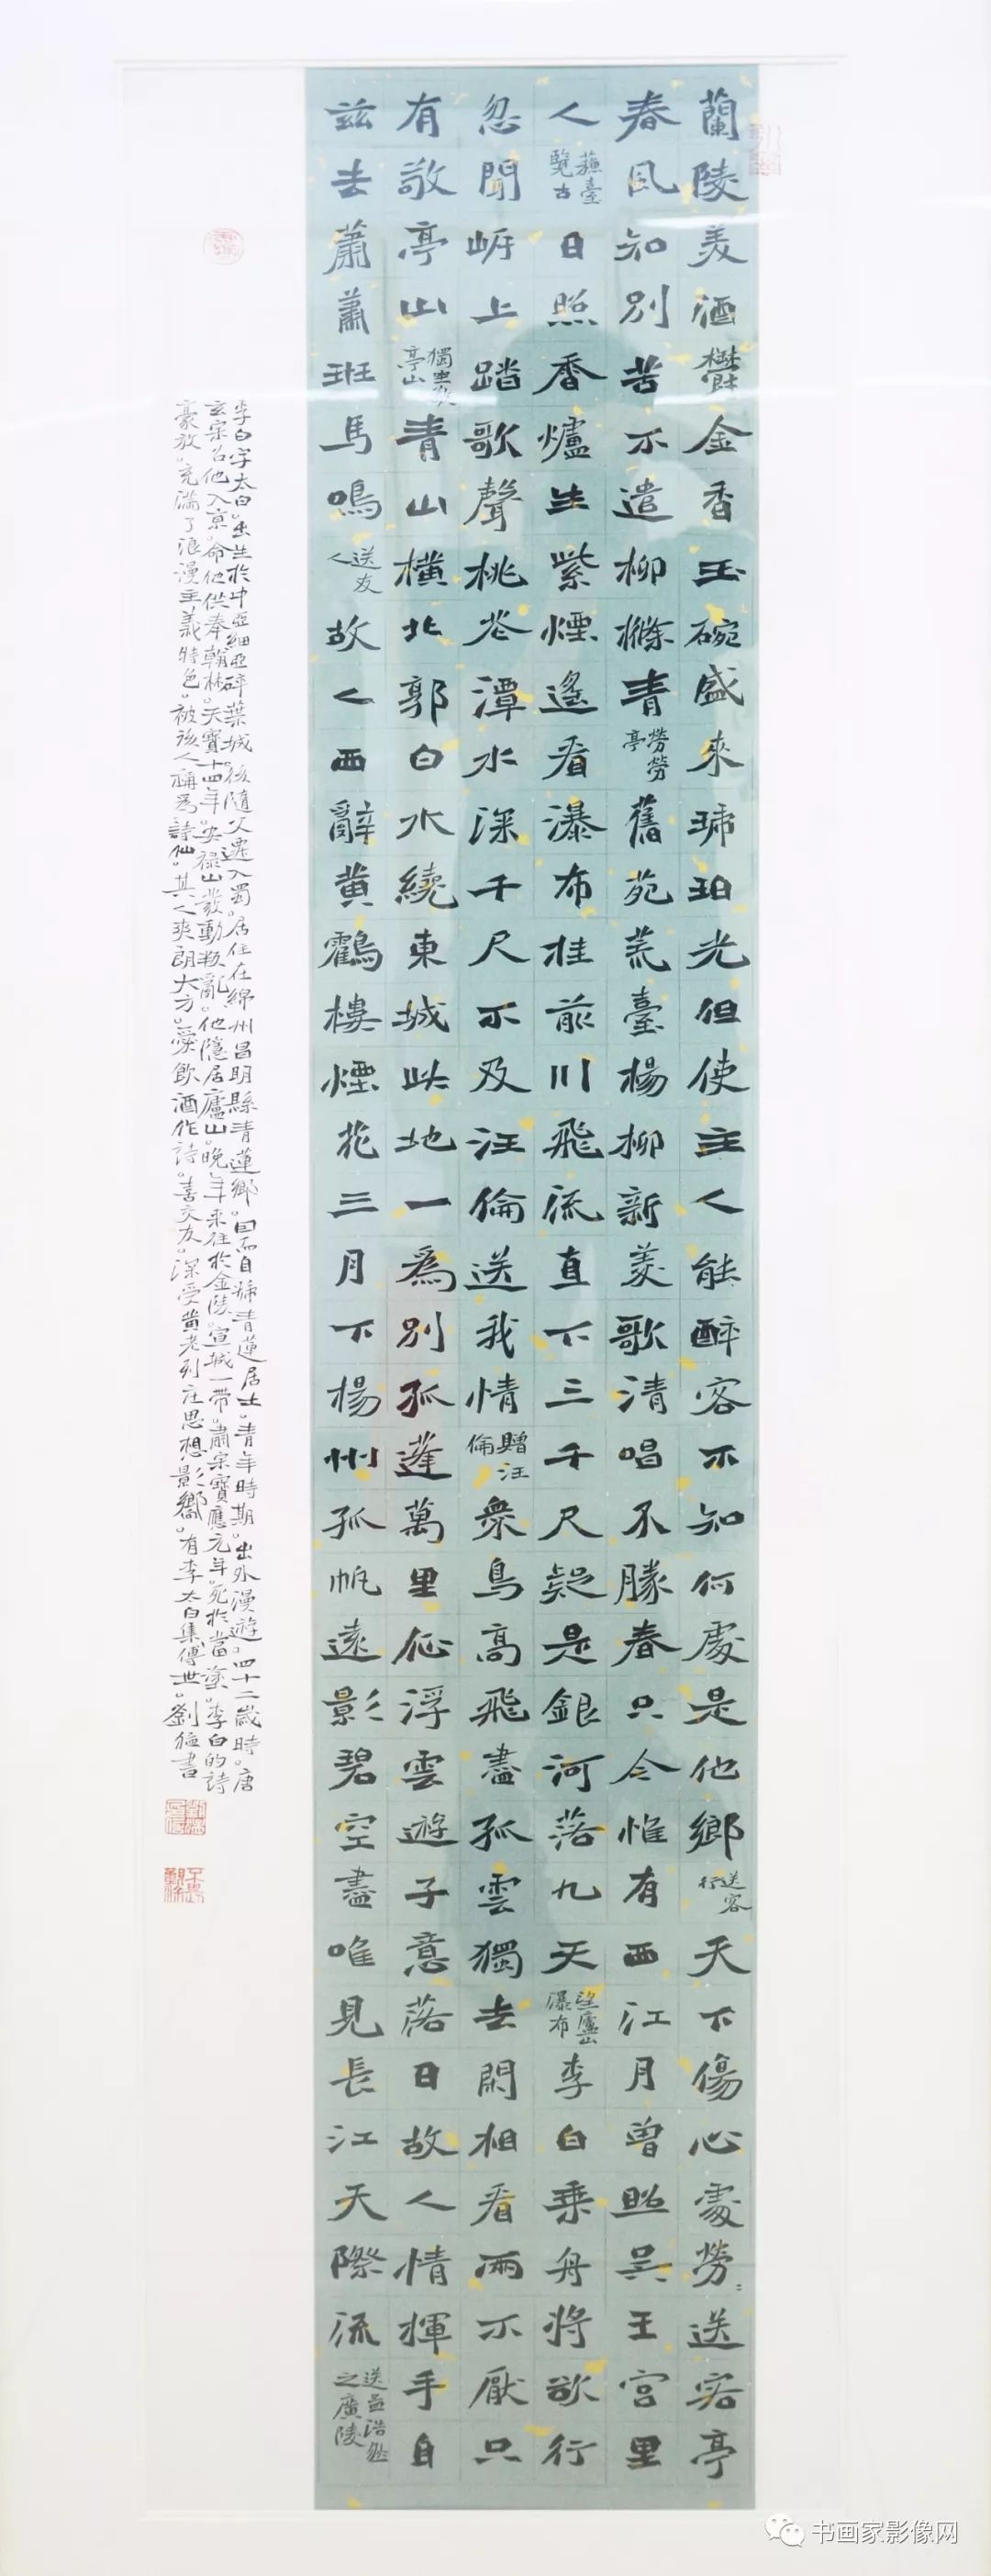 蘭陵美酒鬱金香玉碗盛來琥珀光但使主人能醉客不知何處是他鄉送客行天下傷心處勞〻送客亭
春風知別苦不遣柳條青勞勞亭舊苑荒臺楊柳新菱歌清唱不勝春只今惟有西江月曾照吳王宮里
人蘇臺覽古日照香爐生紫煙遙看瀑布挂前川飛流直下三千尺疑是銀河落九天望廬山瀑布李白乘舟將欲行
忽聞岸上踏歌聲桃花潭水深千尺不及汪倫送我情贈汪倫衆鳥高飛盡孤雲獨去閑相看兩不厭只
有敬亭山獨坐敬亭山青山橫北郭白水繞東城此地一爲別孤蓬萬里征浮雲遊子意落日故人情揮手自
茲去蕭蕭班馬鳴送友人故人西辭黃鶴樓煙花三月下楊州孤帆遠影碧空盡唯見長江天際流送孟浩然之廣陵
李白字太白。出生於中亞細亞碎葉城。後隨父遷入蜀。居住在綿州昌明縣青蓮鄉。因而自號青蓮居士。青年時期。出外漫遊。四十二歲時。唐
玄宗召他入京。命他供奉翰林。天寶十四年。安祿山發動叛亂。他隱居廬山。晚年來往於金陵。宣城一帶。肅宗寶應元年。死於當塗。李白的詩
豪放。充滿了浪漫主義特色。被後人稱爲詩仙。其人爽朗大方。愛飲酒作詩。喜交友。深受黃老列莊思想影響。有李太白集傳世。劉猛書
书画家影像网